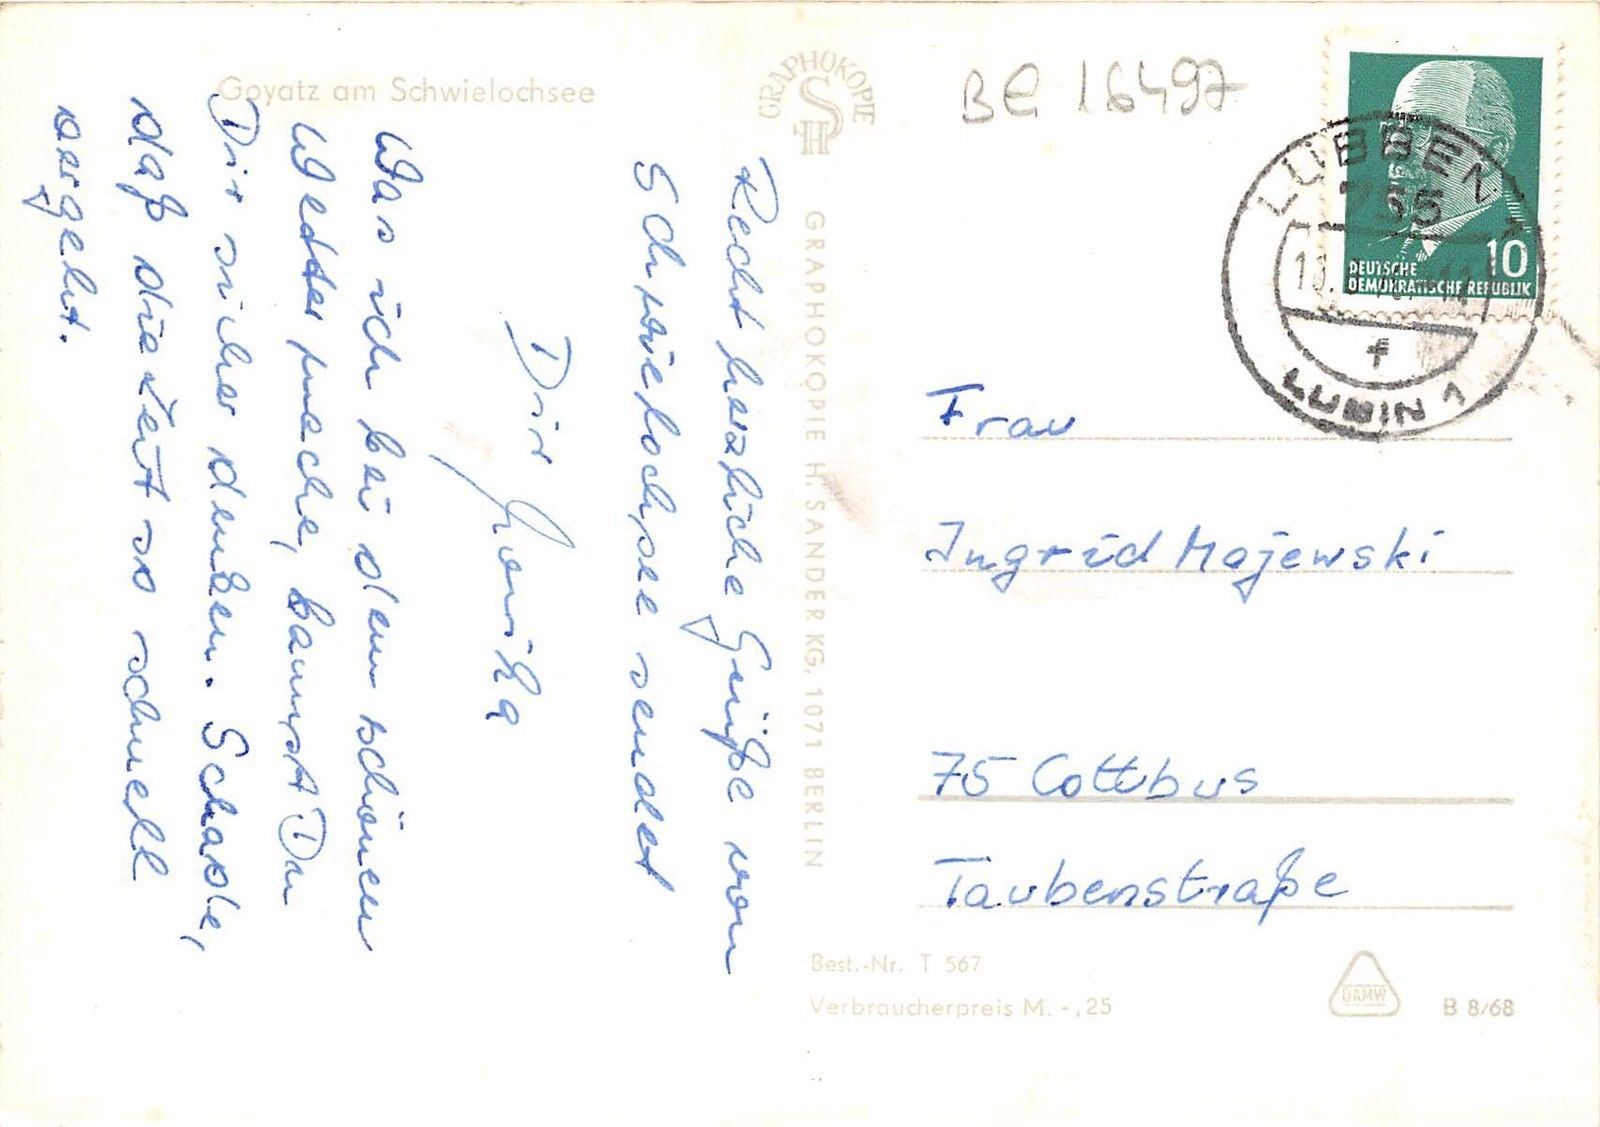 Goyatz am Schwielochsee
GRAPHOKOPIE
HS
BE 16497
LÜBBEN 1
755
f
LUBIN 1
10
DEUTSCHE
DEMOKRATISCHE REPUBLIK
Recht herzliche Grüße von
Schwielochsee sendet
Dir Monika
Was ich bei dem schönen
Wetter mache, kannst Du
Dir sicher denken. Schade,
daß die Zeit so schnell
vergeht.
GRAPHOKOPIE H. SANDER KG, 1071 BERLIN
Frau
Ingrid Majewski
75 Cottbus
Taubenstraße
Best.-Nr. T 567
Verbraucherpreis M. -,25
DAMW
B 8/68